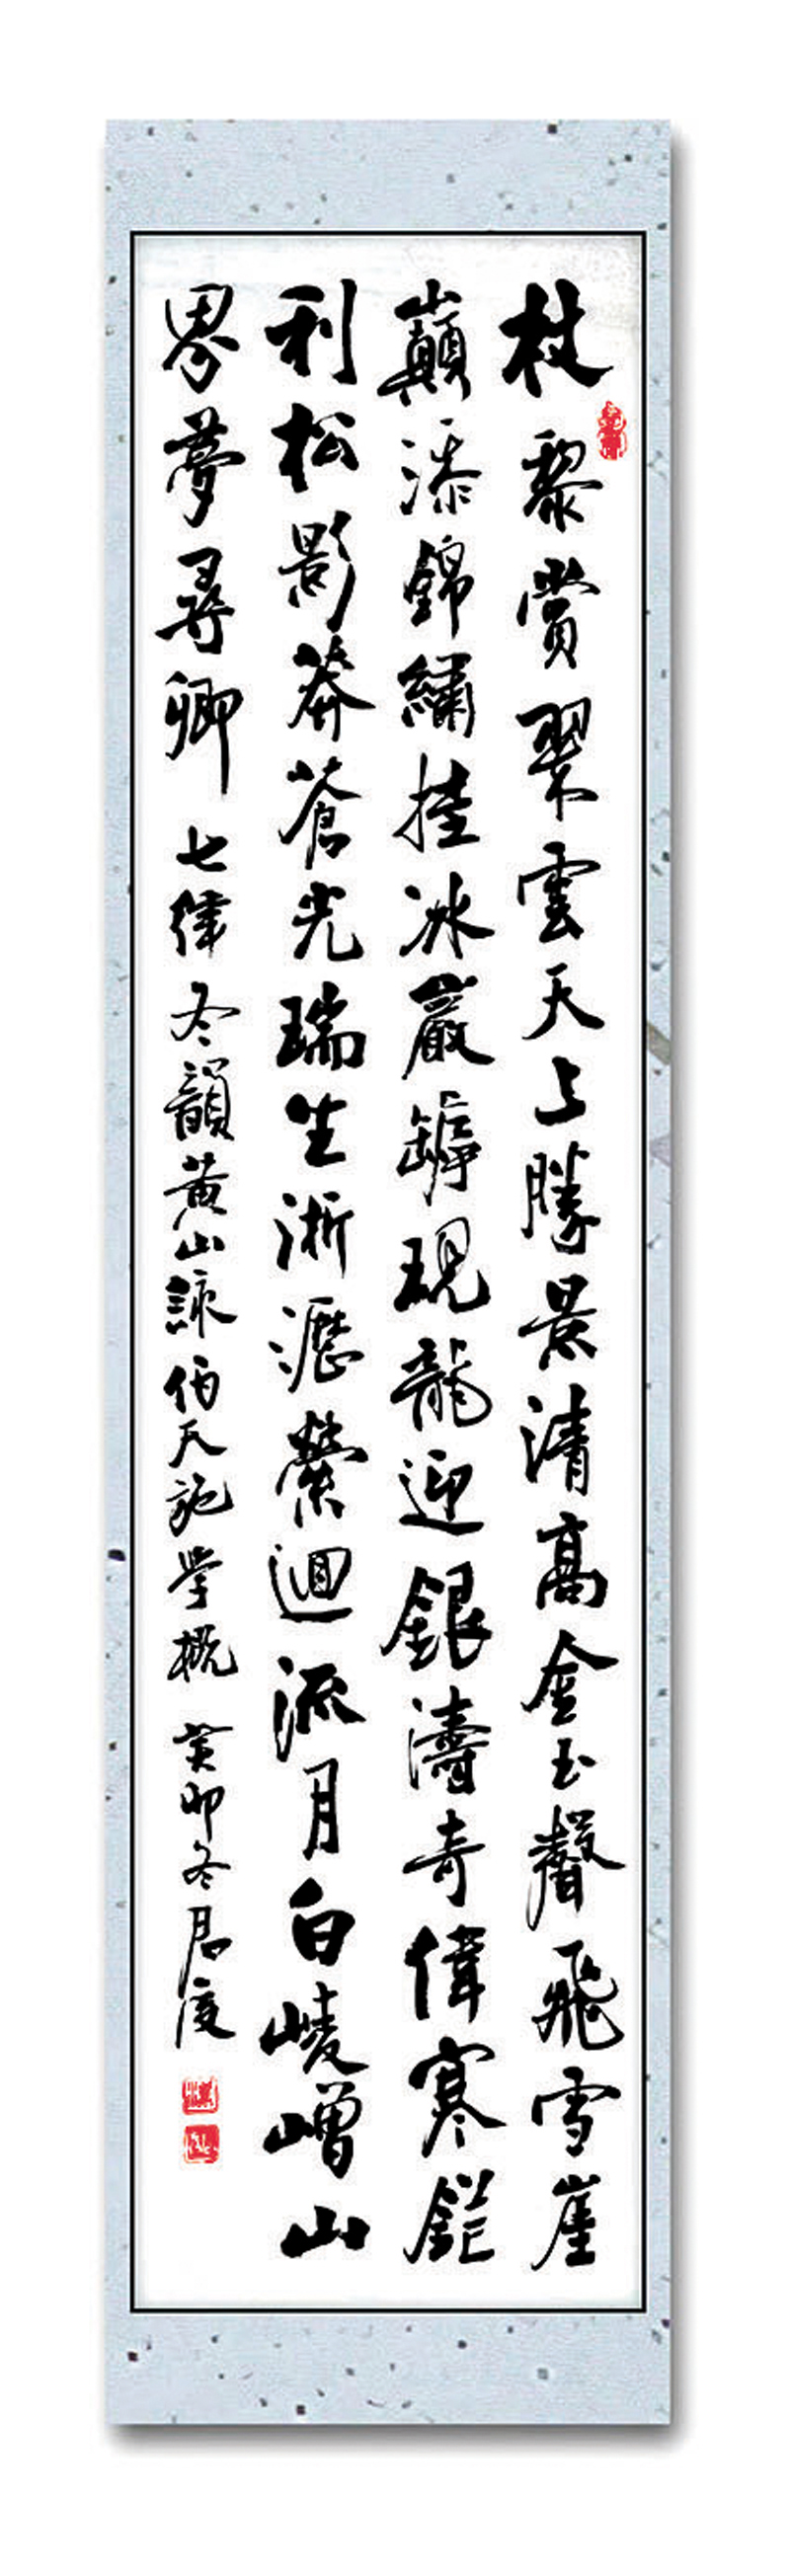 杖黎賞翠雲天上勝景清高金玉聲飛雪崖
巔添錦繡挂冰巖罅現龍迎銀濤奇偉寒鋩
利松影莽蒼光瑞生淅瀝縈迴流月白崚嶒山
界夢尋卿 七律 冬韻黃山 詠 天 學概 癸卯冬 君度